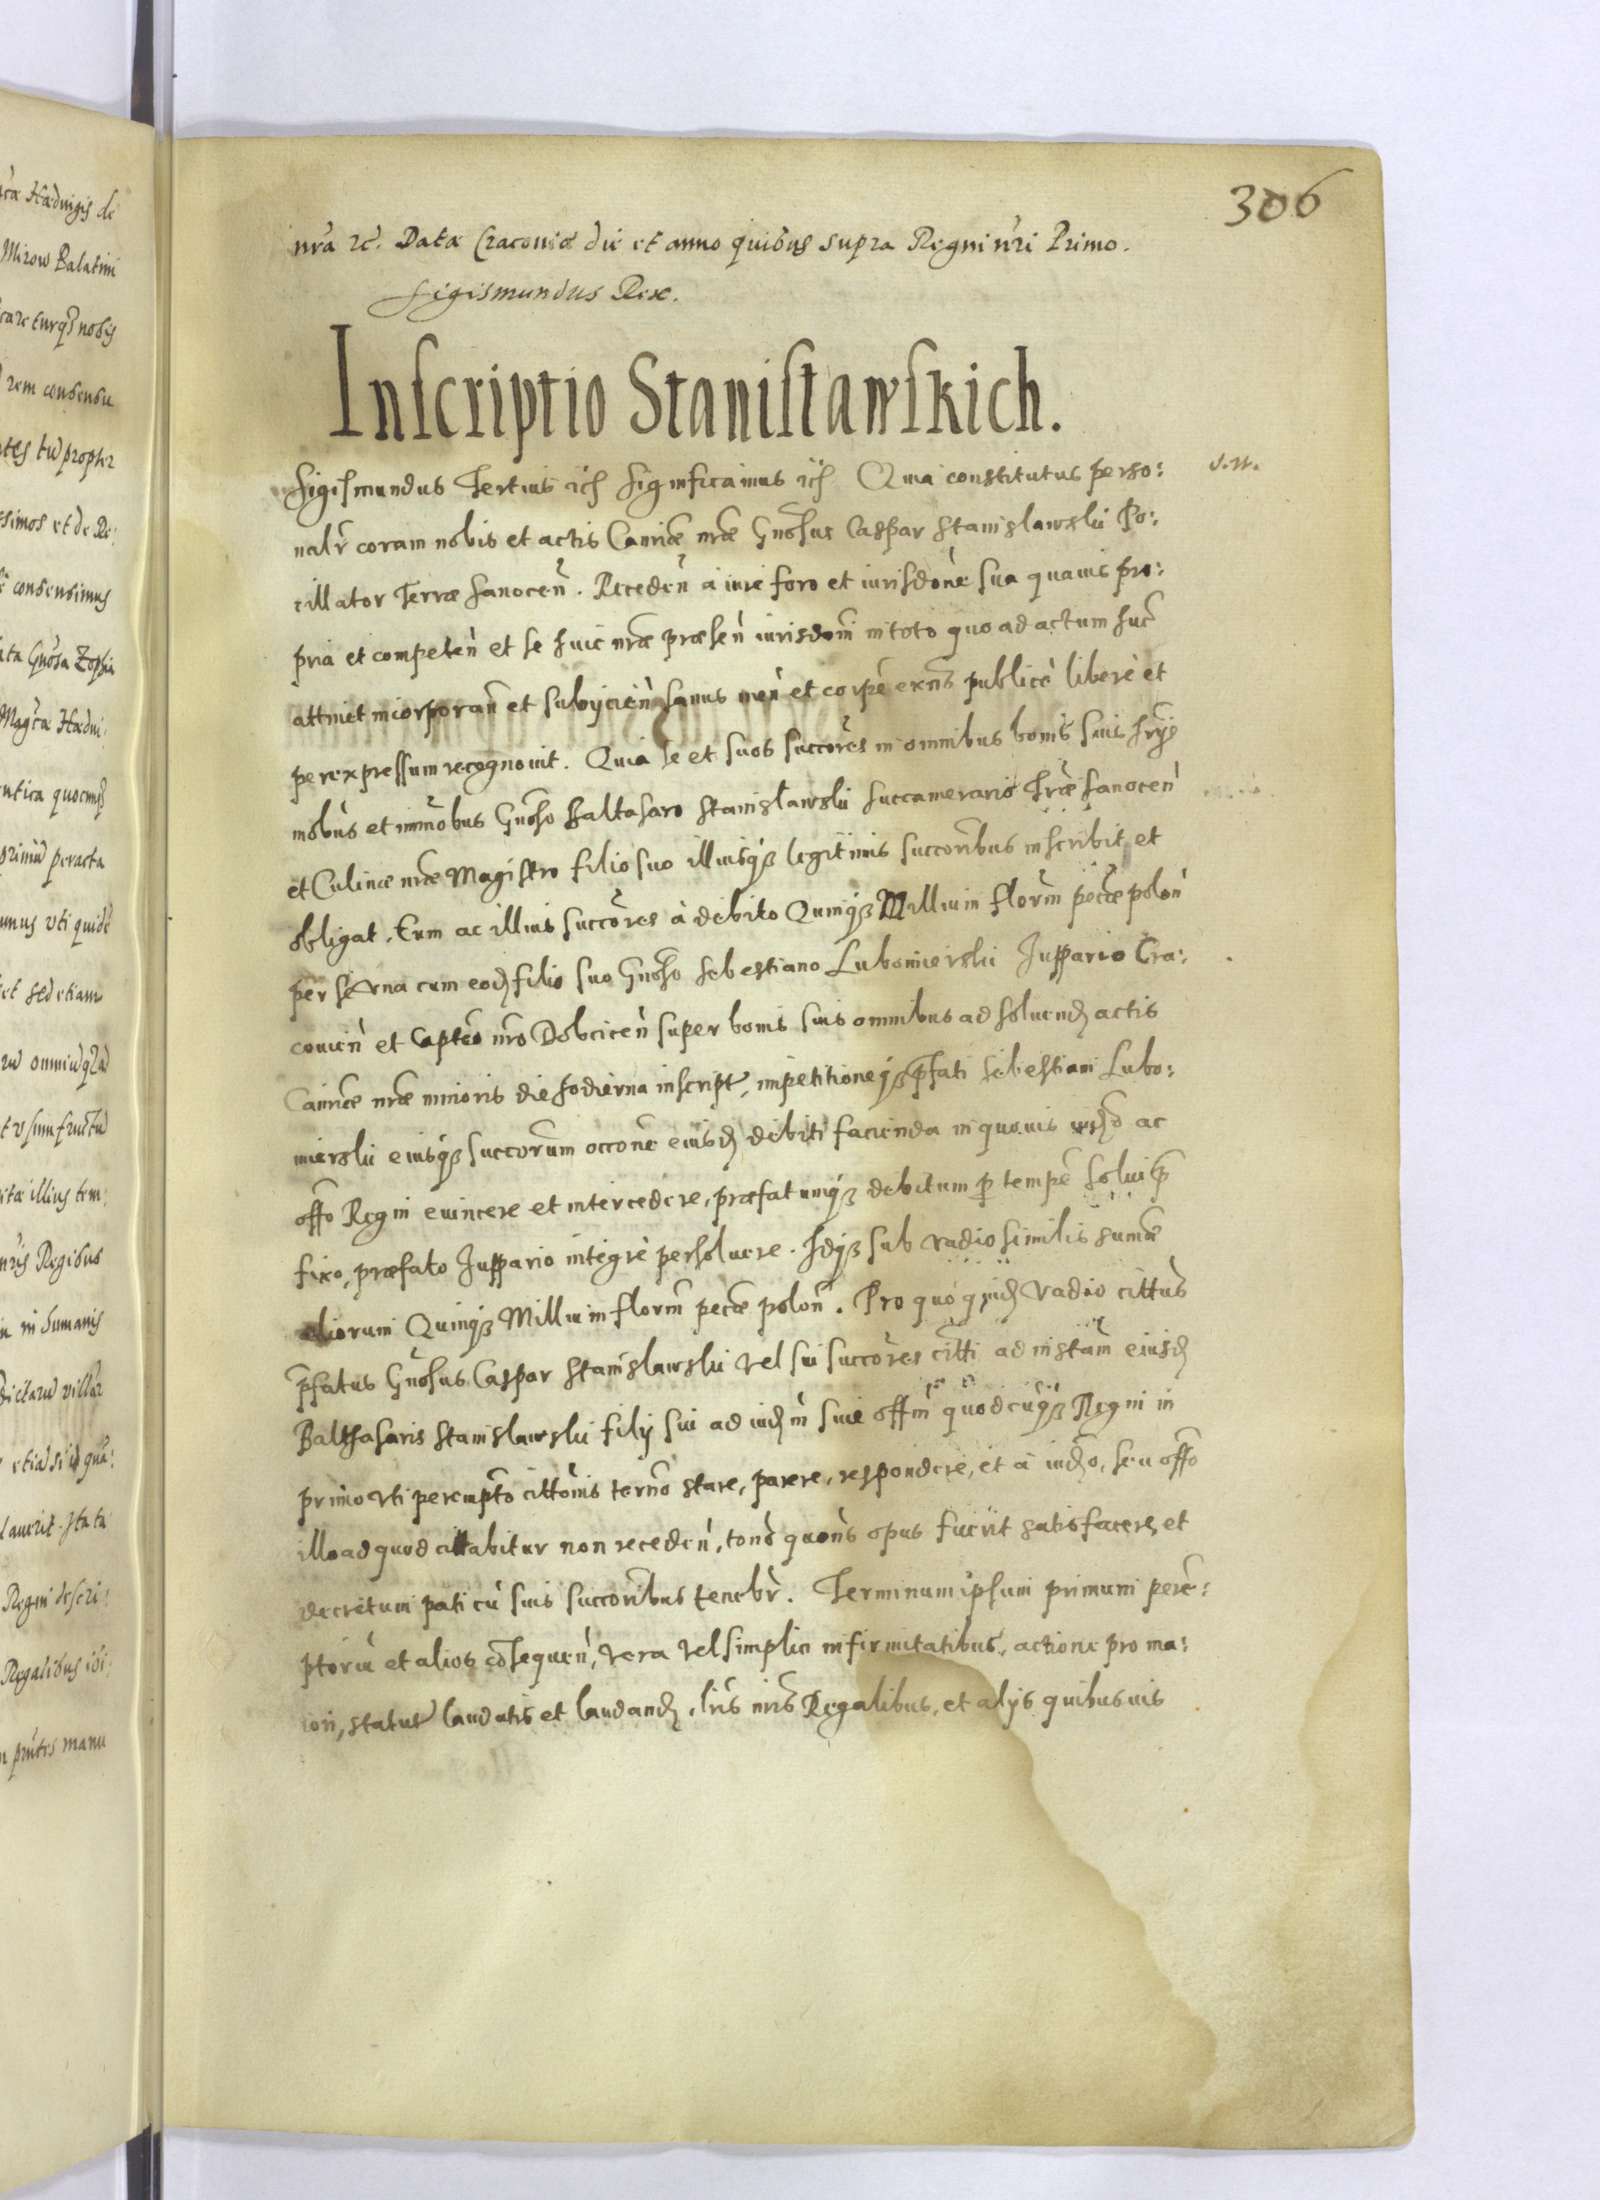 306
nra etc. Datae Cracoviae die et anno quibus supra Regni nri Primo.
Sigismundus Rex.
Inscriptio Stanisławskich.
Sigismundus Tertius etc Significamus etc Quia constitutus perso:
nalr coram nobis et actis Canriae nrae Gnosus Caspar Stanislawski Po:
cillator Terrae Sanocen. Receden a iure foro et iurisdone sua quauis pro:
pria et competen et se huic nrae praesen iurisdoni in toto quo ad actum hunc
attinet incorporan et subijcien sanus men et corpe exns publicè liberè et
per expressum recognouit. Quia se et suos succores in omnibus bonis suis hrys
mobus et immobus Gnoso Baltasaro Stanislawski Succamerario Trae Sanocen
et Culinae nrae Magistro filio suo illiusq legitimis succoribus inscribit et
obligat. Eum ac illius succores à debito Quinq Millium florm pectae polon
per se vna cum eod filio suo Gnoso Sebestiano Lubomierski Juppario Cra:
couien et Capteo nro Dobcicen super bonis suis omnibus ad soluend actis
Canriae nrae minoris die hodierna inscript, impetitioneq pfati Sebestiani Lubo:
mierski eiusq succorum occone eiusd debiti facienda in quouis iudo ac
offo Regni euincere et intercedere, praefatumq debitum p tempe solui
fixo, praefato Juppario integrè persoluere. Idq sub vadio similis sumae
aliorum Quinq Millium florm pectae polon. Pro quo quid vadio cittus
pfatus Gnosus Caspar Stanislawski vel sui succores citti ad instam eiusd
Balthasaris Stanislawski filij sui ad iudm siue offm quodcuq Regni in
primo vti perempto cittonis terno stare, parere, respondere, et à iudo, seu offo
illo ad quod cittabitur non receden, tons quons opus fuerit satisfacere, et
decretum pati cu suis succoribus tenebr. Terminum ipsum primum perē:
ptoriu et alios cosequen, vera vel simplici infirmitatibus, actione pro ma:
iori, statut laudatis et laudand, lris nris Regalibus, et alijs quibusuis